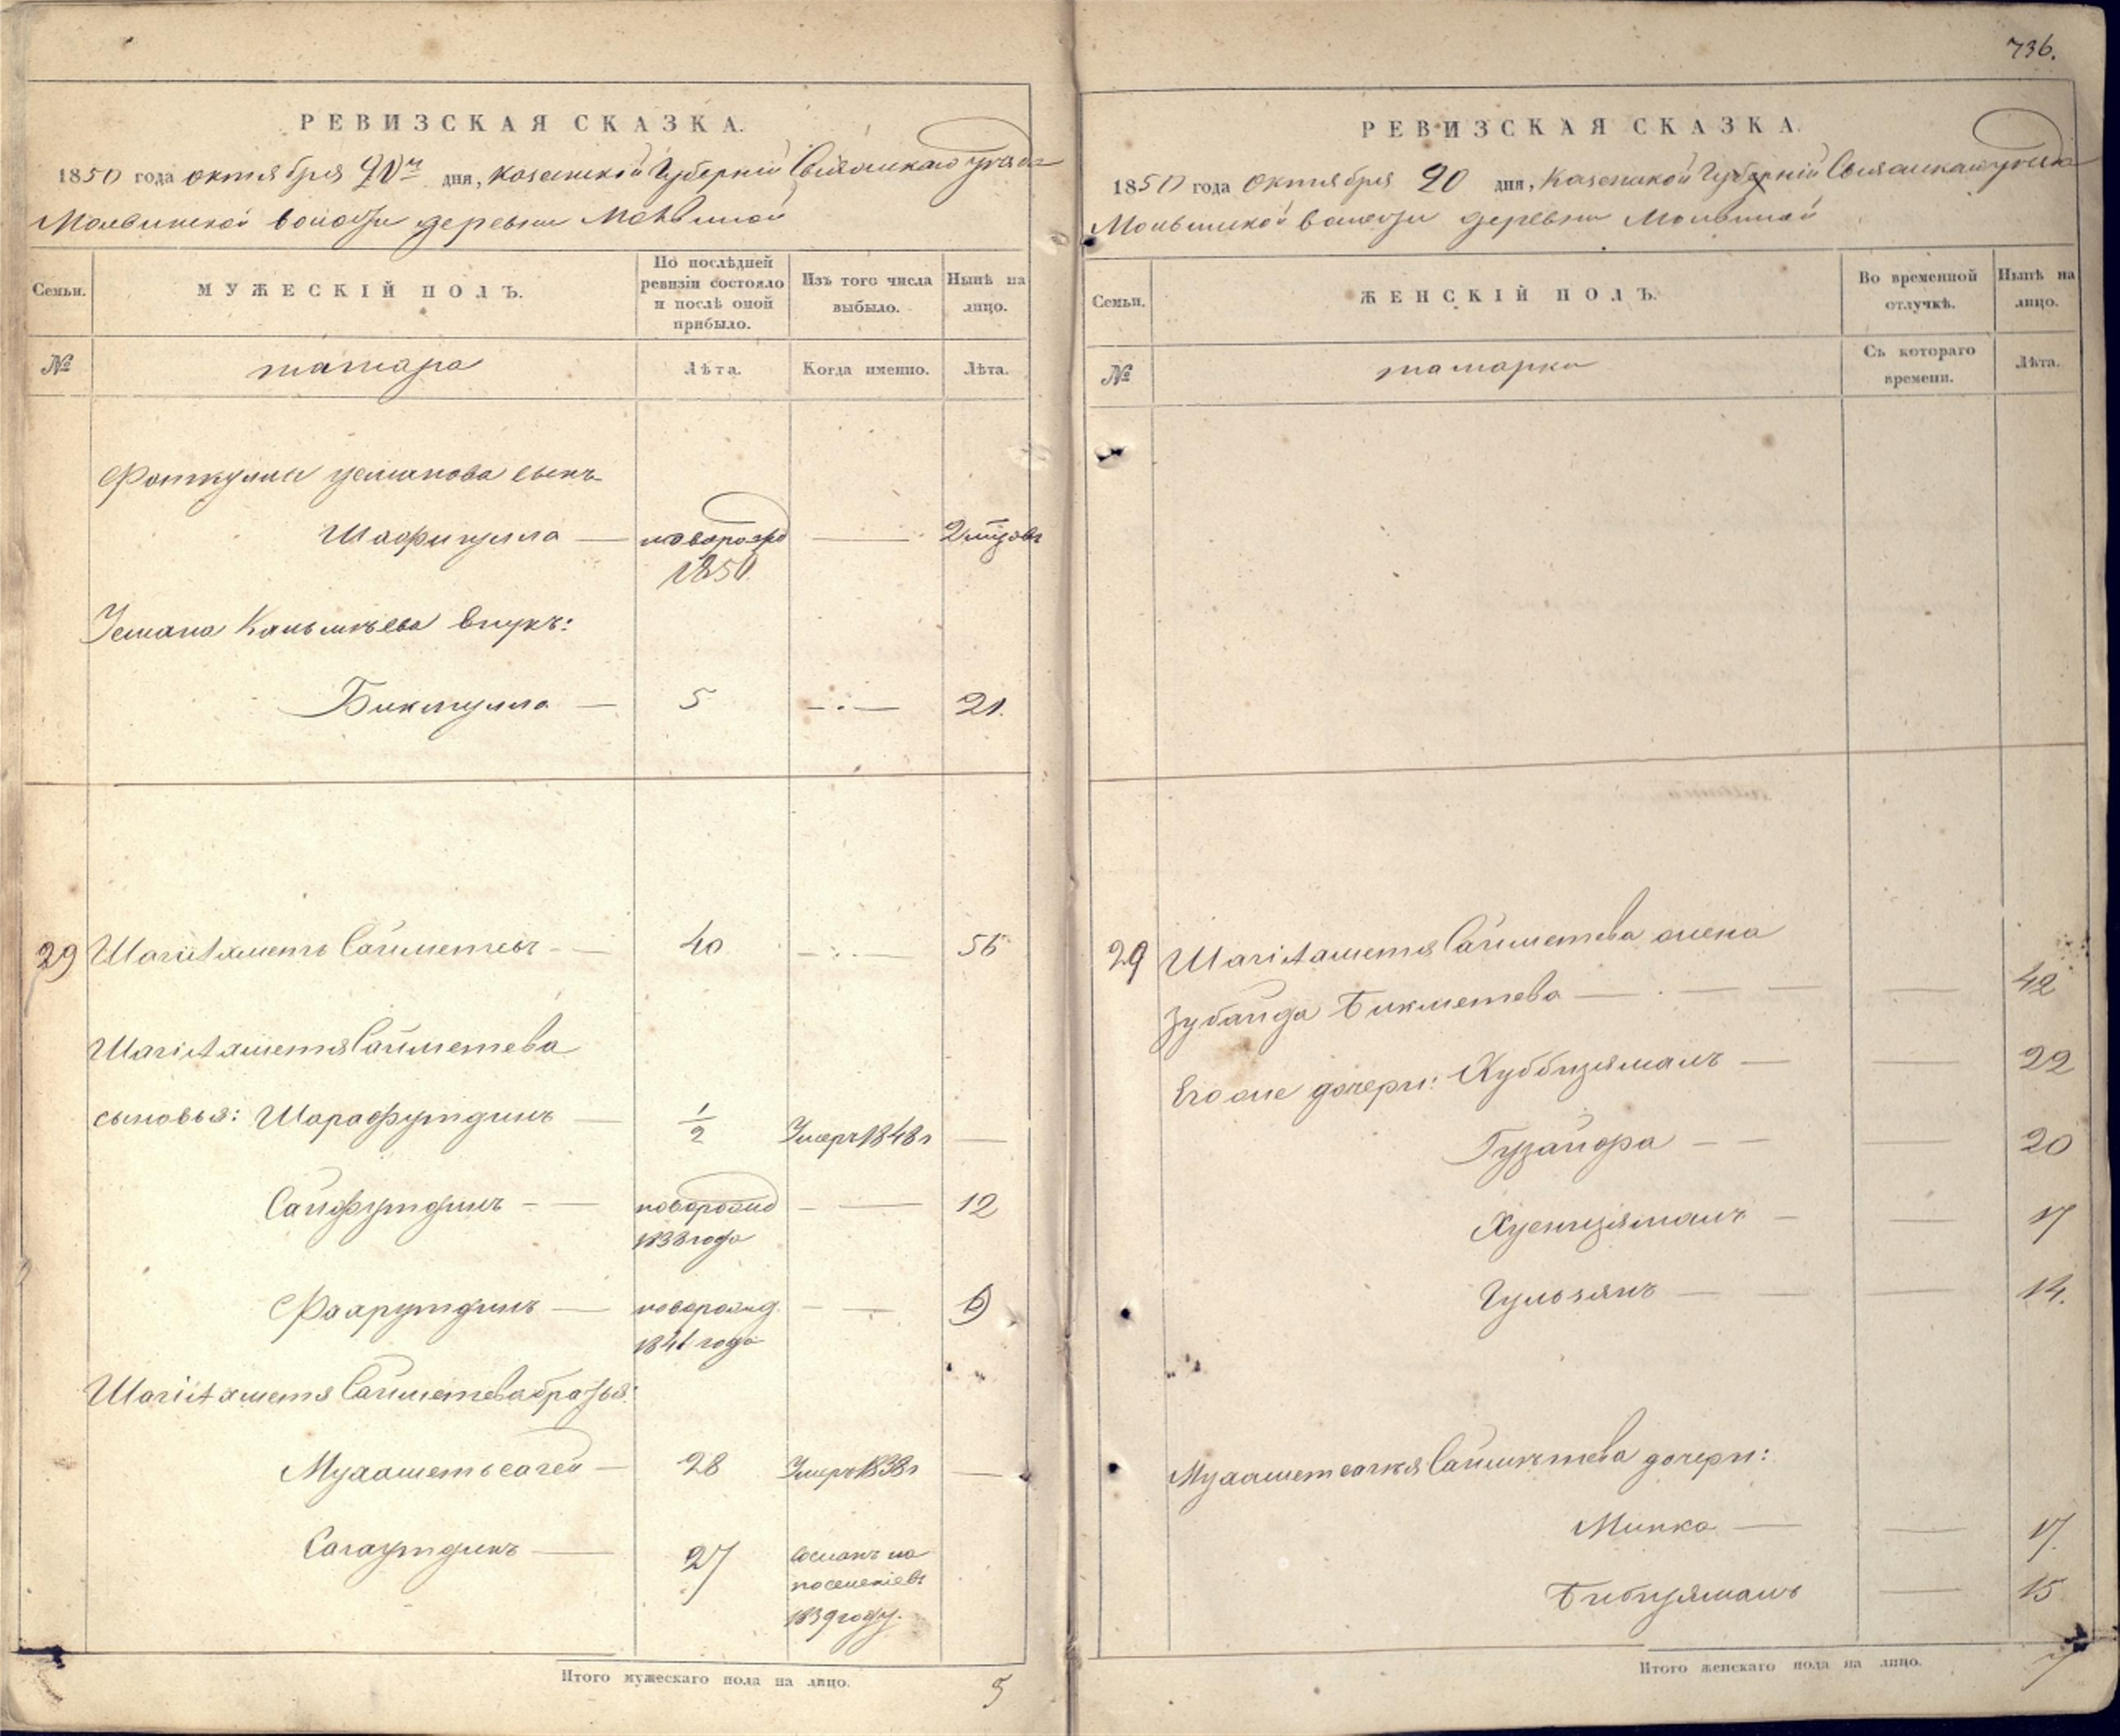 736.
РЕВИЗСКАЯ СКАЗКА.
1850 года октября 20го дня, Казанской Губернии Свіяжскаго уѣзда
Мольвинской волости деревни Мольвиной
Семьи.
МУЖЕСКІЙ ПОЛЪ.
По послѣдней ревизіи состояло и послѣ оной прибыло.
Изъ того числа выбыло.
Нынѣ на лицо.
№
татара
Лѣта.
Когда именно.
Лѣта.
Фаткуллы Усманова сынъ
Шафигулла — новорожд — 2 мѣсяцовъ
1850
Усмана внукъ:
Бикмулла — 5 —:— 21.
29 ШагиАхметъ Сайметевъ — 40 —:— 56
ШагиАхметя Сайметева
сыновья: Шарафутдинъ — 1/2 Умеръ 1848 г —
Сайфутдинъ — новорожд — 12
1838 года
Фахрутдинъ — новорожд. — 9
1841 года
ШагиАхметя Сайметева братья:
Мухаметьсагей — 28 Умеръ 1838 г —
Сагаутдинъ — 27 Сосланъ на
поселеніевъ
1839 году.
Итого мужескаго пола на лицо. 5
РЕВИЗСКАЯ СКАЗКА.
1850 года Октября 20 дня, Казанской Губерній Свіяжскаго уѣзда
Мольвинской волости деревни Мольвиной
Семьи.
ЖЕНСКІЙ ПОЛЪ.
Во временной отлучкѣ.
Нынѣ на лицо.
№
татарки
Съ котораго времени.
Лѣта.
29 ШагиАхметя Сайметева жена
Зубайда Бикметева — — 42
Его же дочери: Хуббизямалъ — — 22
Гузайфа — — 20
Хуснизямалъ — — 17
Гульзянъ — — 14.
Мухаметсагея Сайметева дочери:
Минка — — 17.
Бибизямалъ — 15
Итого женскаго пола на лицо. 7